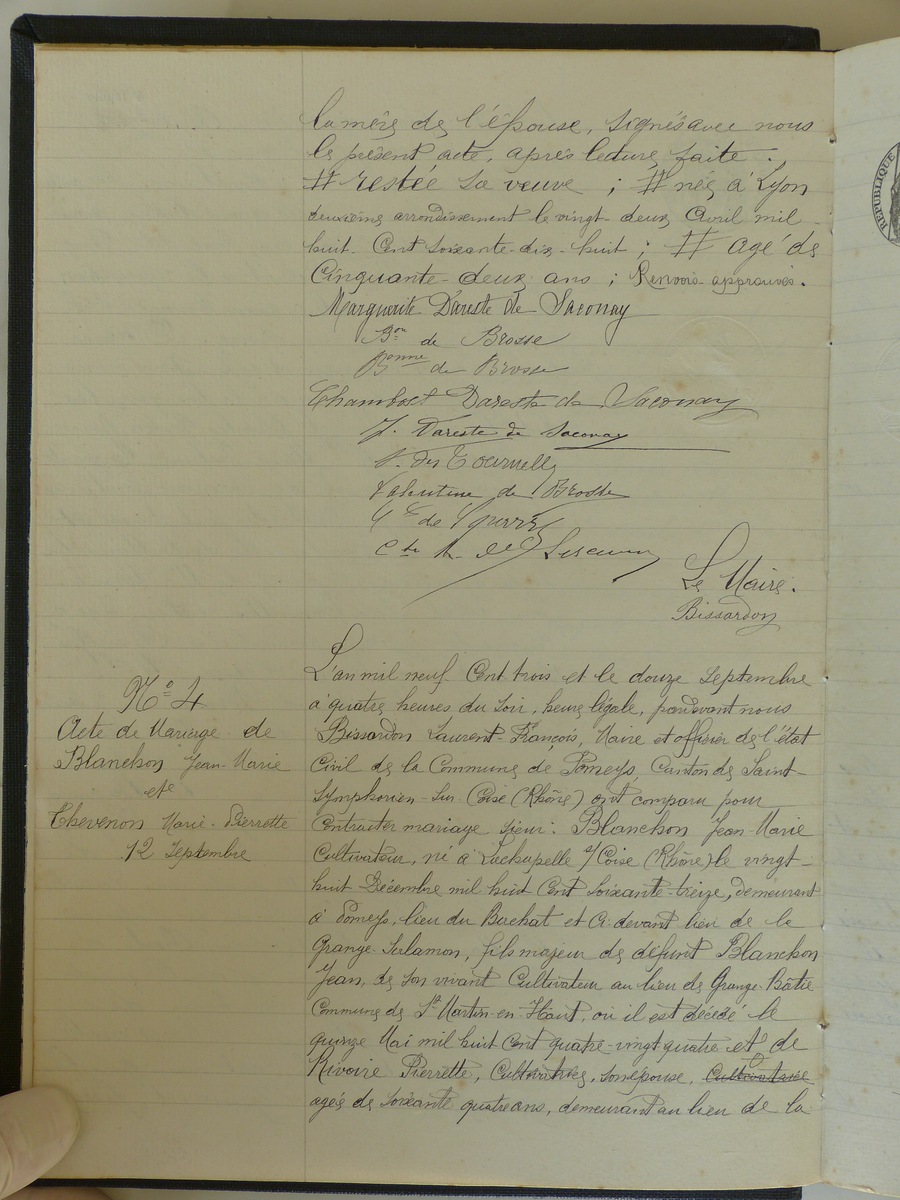 la mère de l'épouse, signés avec nous
le présent acte, après lecture faite.
# restée sa veuve ; # née à Lyon
deuxième arrondissement le vingt-deux Avril mil-
huit-Cent soixante-dix-huit ; # agé de
Cinquante-deux ans ; Renvois approuvés.
Marguerite Dareste de Saconay
Bon de Brosse
Bonne de Brosse
Chambost Dareste de Saconay
J. Dareste de Saconay
des Tournelles
Valentine de Brosse
de
Le Maire.
Bissardon
N° 4
Acte de Mariage de
Blanchon Jean-Marie
et
Thevenon Marie-Pierrette
12 Septembre
L'an mil neuf Cent trois et le douze septembre
à quatre heures du soir, heure légale, pardevant nous
Bissardon Laurent-François, Maire et officier de l'état
Civil de la Commune de Pomeys, Canton de Saint-
Symphorien-sur-Coise (Rhône) ont comparu pour
contracter mariage sieur: Blanchon Jean-Marie
Cultivateur, né à Lachapelle s/Coise (Rhône) le vingt-
huit Décembre mil huit Cent soixante-treize, demeurant
à Pomeys, lieu du Bachat et Ci-devant lieu de la
Grange-Serlamon, fils majeur de défunt Blanchon
Jean, de son vivant Cultivateur au lieu de Grange-Bâtie
Commune de St Martin-en-Haut, où il est décédé le
quinze Mai mil huit Cent quatre-vingt quatre et de
Rivoire Pierrette, Cultivatrice, son épouse, Cultivatrice
agée de soixante quatre ans, demeurant au lieu de la
REPUBLIQUE